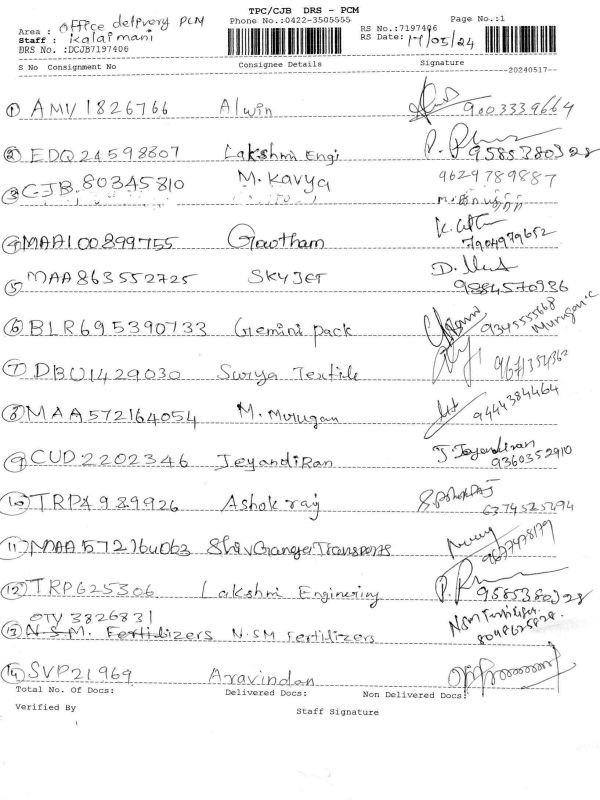 TPC/CJB DRS - PCM
Area : Office delivery PCM
Phone No.:0422-3505555
Page No.:1
Staff : Kalaimani
RS No.:7197406
DRS No. :DCJB7197406
RS Date: 17/05/24
S No Consignment No Consignee Details Signature
20240517
1 AMV1826766 Alwin 9003339664
2 EDQ24598807 Lakshmi Engi 9585380328
3 CJB.80345810 M. Kavya 9629789887
4 MAA100899755 Gowtham 7904979652
5 MAA863552725 SKYJET 9884570936
6 BLR695390733 Gemini pack 9345555668 Murugan.C
7 DBU1429030 Surya Textile
8 MAA572164054 M. Murugan 9444384464
9 CUD2202346 Jeyandiran J. Jeyandiran
9360352910
10 TRP4989926 Ashok raj 6374525294
11 MAA572164063
12 TRP625306 Lakshmi Enginering 9585380328
OTY 3826831
13 N.S.M. Fertilizers N.SM Fertilizers 8048625828
14 SVP21969 Aravindan
Total No. Of Docs: Delivered Docs: Non Delivered Docs:
Verified By Staff Signature